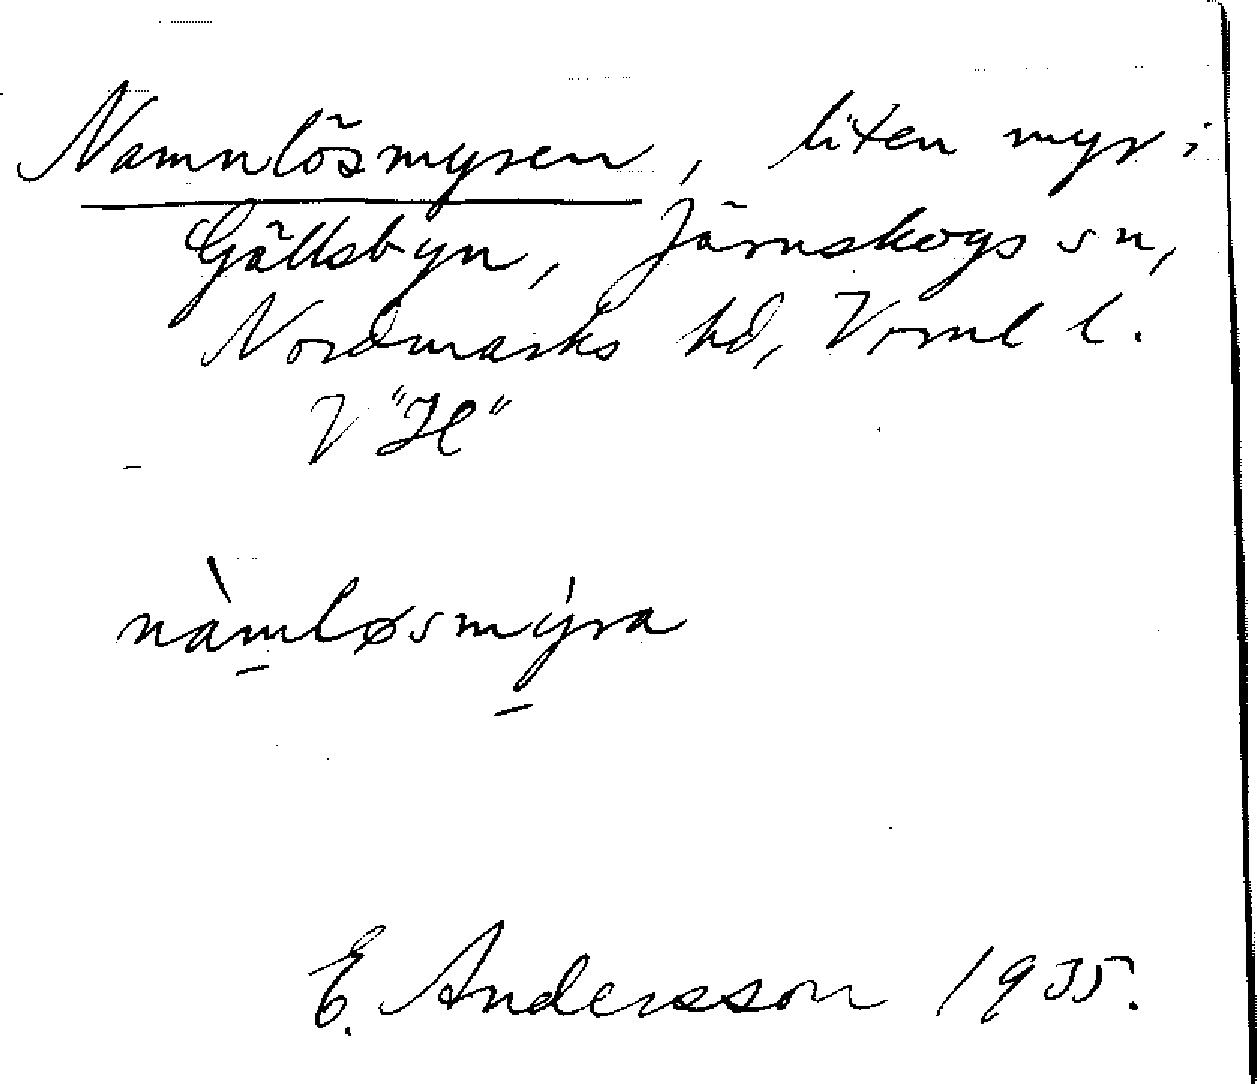 Namnlösmyren, liten myr i
Gällsbyn, Järnskogs sn,
Nordmarks hd, Vrml l.
V "H"
nàmløsmýra
E. Andersson 1935.